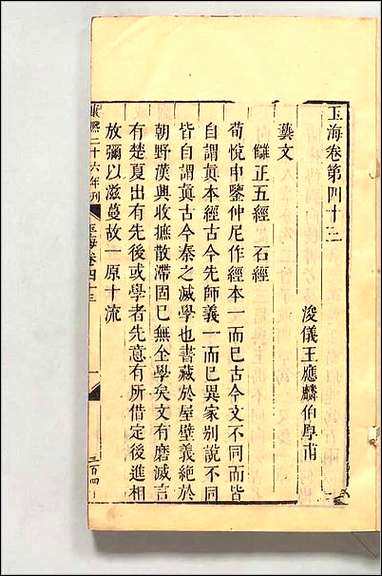 玉海卷第四十三
浚儀王應麟伯厚甫
藝文
讎正五經 石經
荀悅申鑒仲尼作經本一而已古今文不同而皆
自謂眞本經古今先師義一而已異家别說不同
皆自謂眞古今秦之滅學也書藏於屋壁義絶於
朝野漢興收摭散滯固已無全學矣文有磨滅言
有楚夏出有先後或學者先意有所借定後進相
放彌以滋蔓故一原十流
康熙二十六年刋
玉海卷四十三